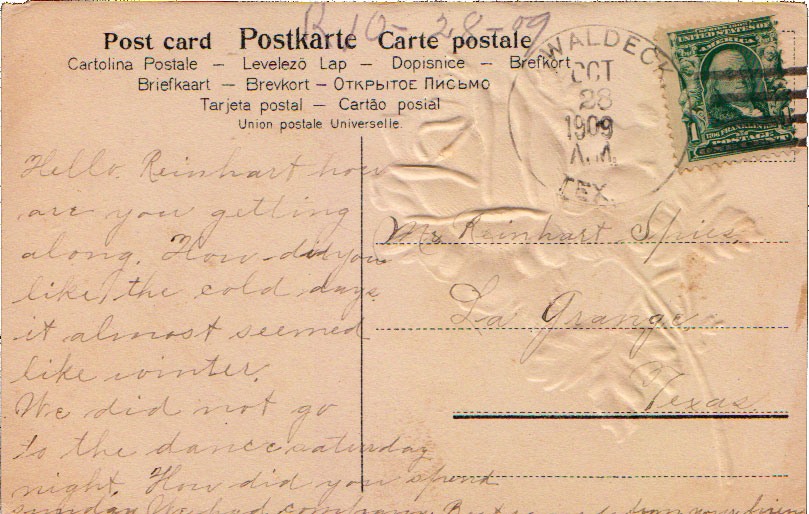 R 10-28-09
Post card Postkarte Carte postale
Cartolina Postale – Levelező Lap – Dopisnice – Brefkort
Briefkaart – Brevkort – Открытое Письмо
Tarjeta postal – Cartão postal
Union postale Universelle.
WALDECK
OCT
28
1909
A.M.
TEX.
UNITED STATES OF
AMERICA
FRANKLIN
POSTAGE
ONE CENT
Hello. Reinhart how
are you getting
along. How did you
like the cold days
it almost seemed
like winter.
We did not go
to the dance saturday
night. How did you spend
sunday We had company. Best from your
Mr Reinhart Spies.
La Grange
Texas